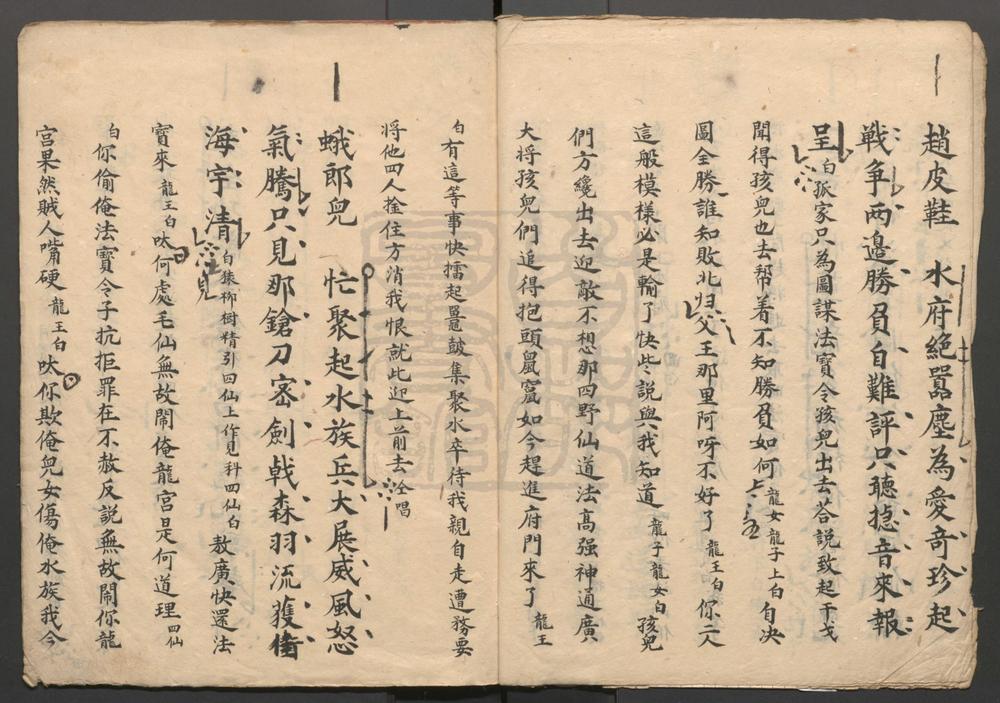 趙皮鞋　水府絕囂塵為愛奇珍起
戰爭两邊勝負自難評只聽捻音來報
呈白孤家只為圖謀法寶令孩兒出去荅說致起干戈
聞得孩兒也去帮着不知勝負如何龍女龍子上白自决
圖全勝誰知敗北归父王那里阿呀不好了龍王白你二人
這般模樣必是輸了快些說與我知道龍子龍女白孩兒
們方纔出去迎敵不想那四野仙道法高强神通廣
大将孩兒們追得抱頭鼠竄如今趕進府門來了龍王
白有這等事快擂起鼉鼓集聚水卒待我親自走遭務要
将他四人拴住方消我恨就此迎上前去仝唱
蛾郎兒　忙聚起水族兵大展威風怒
氣騰只見那鎗刀密劍戟森羽流獲衛
海宇清白猿柳樹精引四仙上作見科四仙白敖廣快還法
寳來龍王白呔何處毛仙無故鬧俺龍宮是何道理四仙
白你偷俺法寳令子抗拒罪在不赦反説無故鬧你龍
宮果然賊人嘴硬龍王白呔你欺俺兒女傷俺水族我今